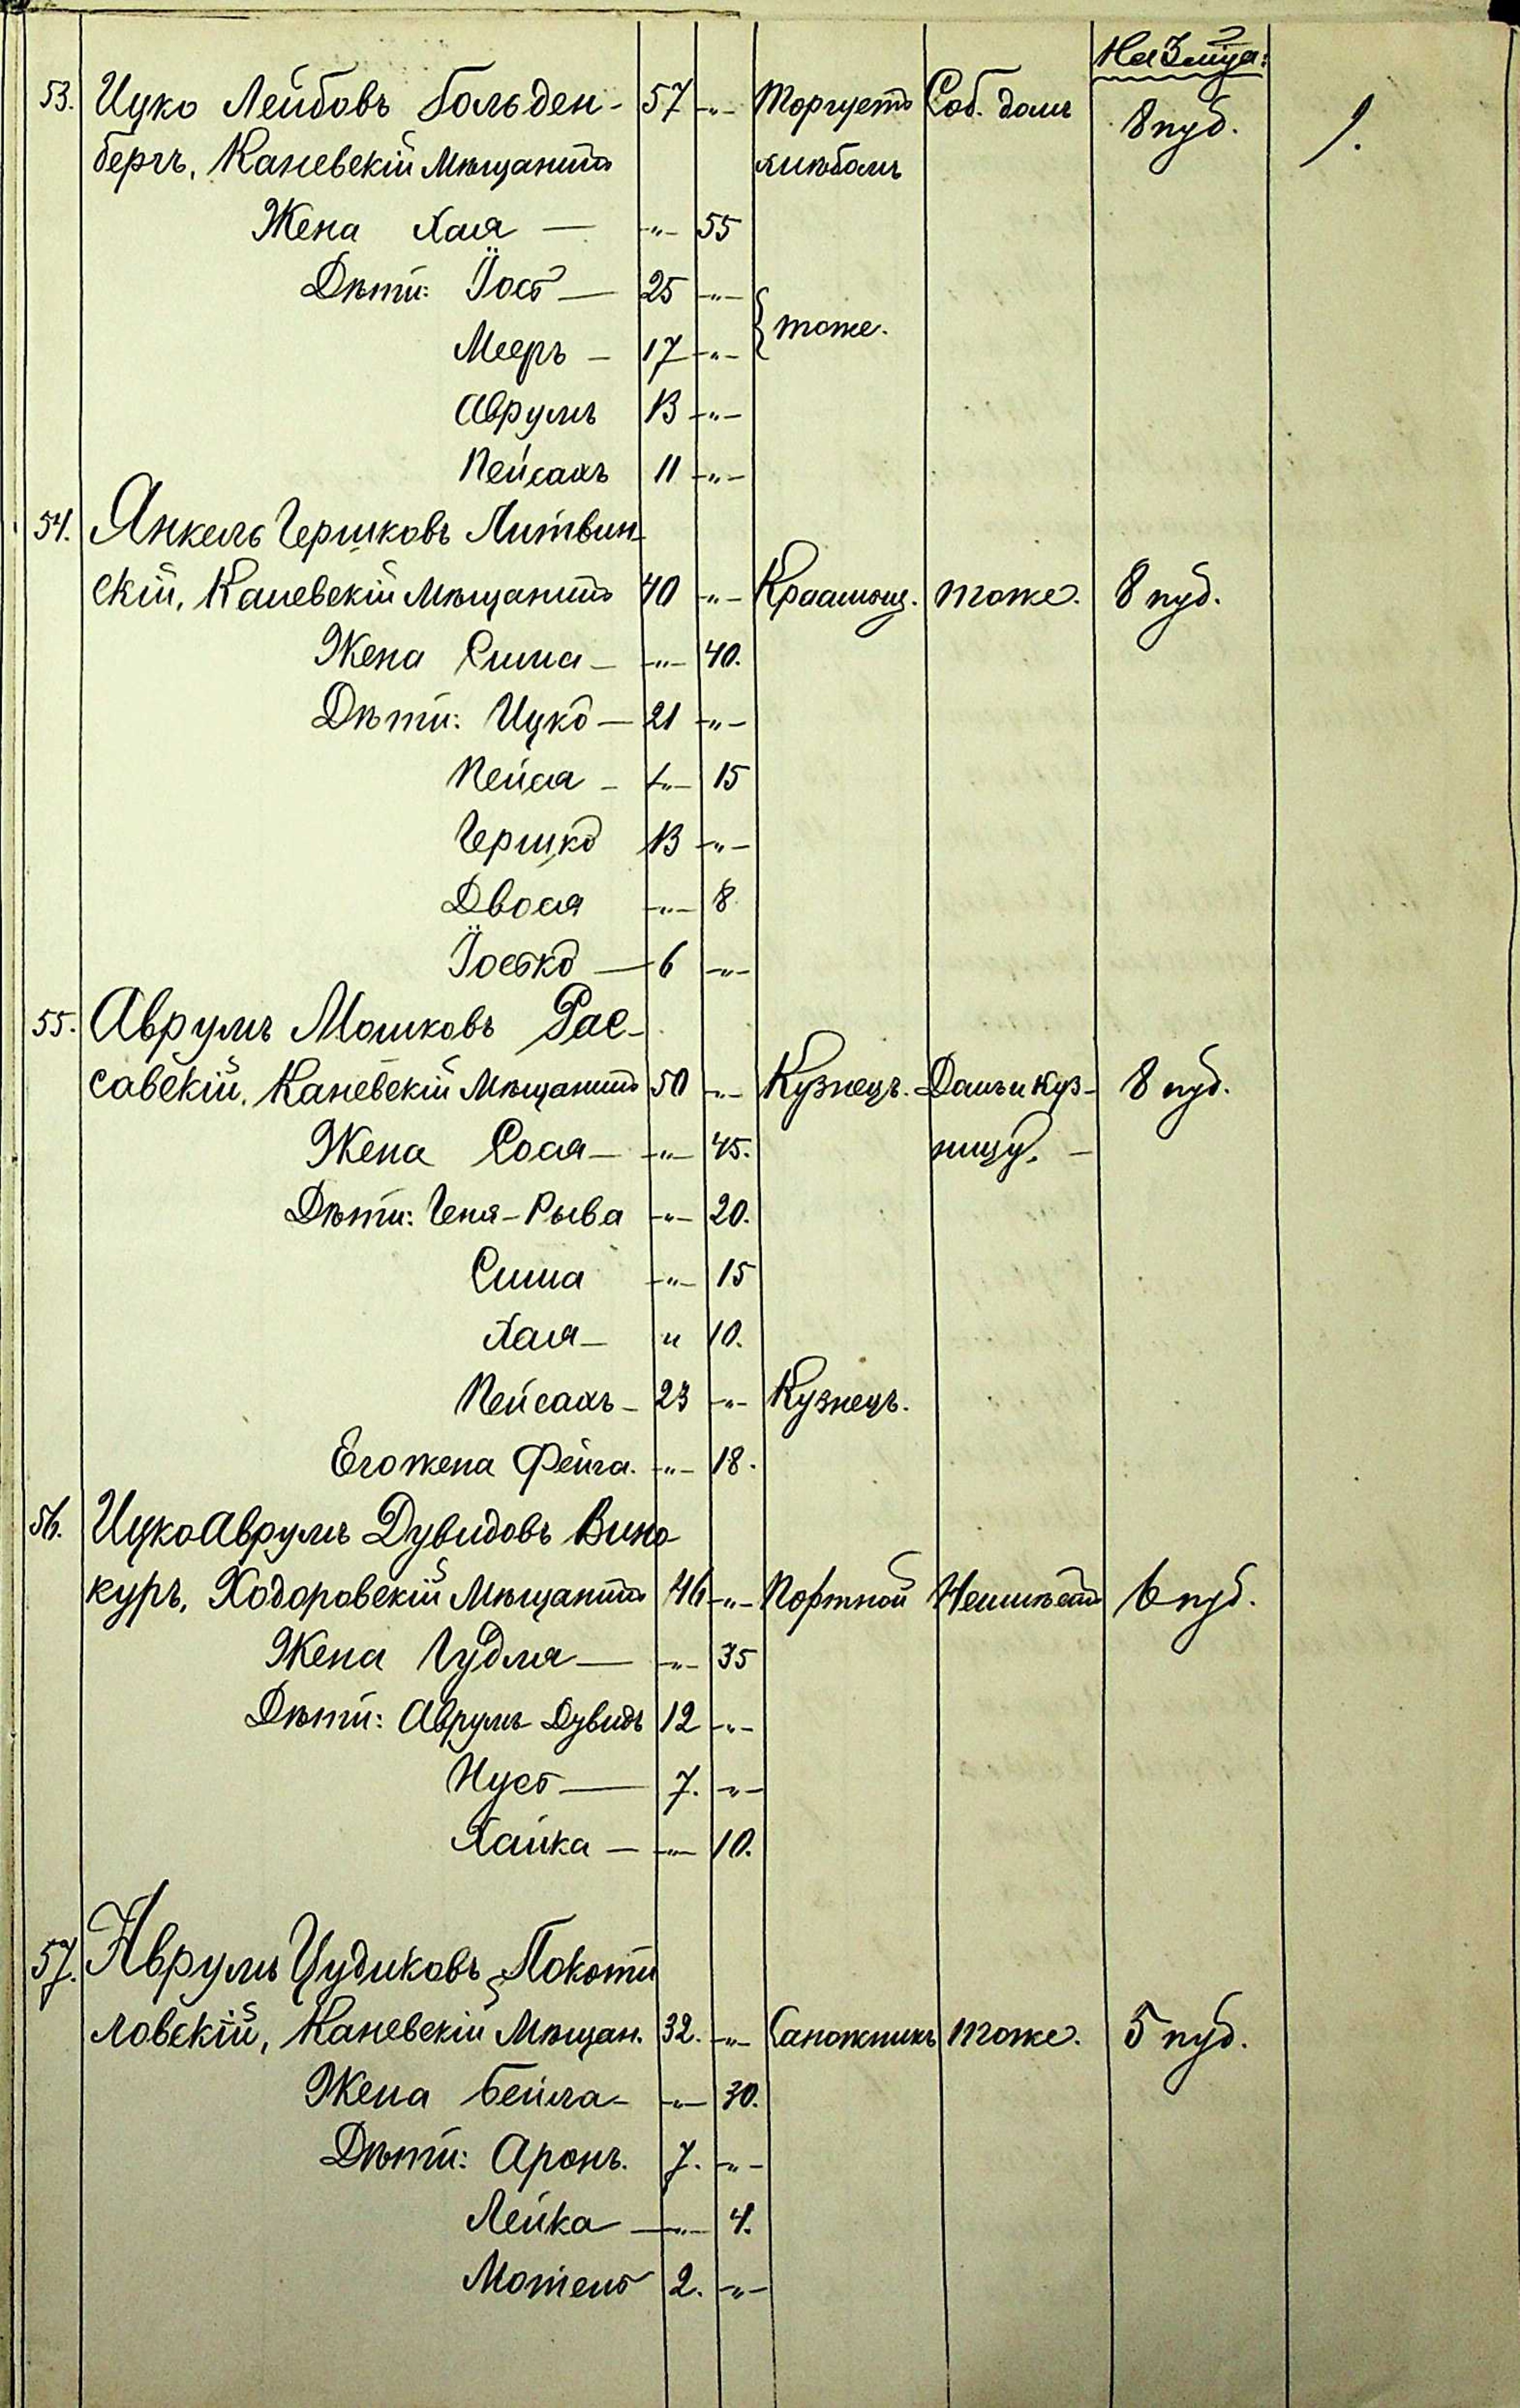 На 3 мѣца:
53. Ицко Лейбовъ Гольден- 57 -"- Торгуетъ Соб. домъ 8 пуд. 1.
бергъ, Каневскій Мѣщанинъ хлѣбомъ
Жена Хая — -"- 55
Дѣти: Йось — 25 -"- } тоже.
Мееръ — 17 -"-
Аврумъ 13 -"-
Пейсахъ 11 -"-
54. Янкель Гершковъ Литвин-
скій, Каневскій Мѣщанинъ 40 -"- тоже. 8 пуд.
Жена Сима — -"- 40.
Дѣти: Ицко — 21 -"-
Пейса — -"- 15
Гершко 13 -"-
Двося -"- 8
Йосько — 6 -"-
55. Аврумъ Мошковъ Рас-
савскій, Каневскій Мѣщанинъ 50 -"- Кузнецъ. Домъ и куз- 8 пуд.
Жена Сося — -"- 45. ницу. —
Дѣти: Геня-Рыва -"- 20.
Сима -"- 15
Хая — " 10.
Пейсахъ — 23 -"- Кузнецъ.
Его жена Фейга. -"- 18.
56. Ицко Аврумъ Дувидовъ Вино-
куръ, Ходоровскій Мѣщанинъ 46 -"- Портной Неимѣетъ 6 пуд.
Жена Гудля — -"- 35
Дѣти: Аврумъ Дувидъ 12 -"-
Нусъ — 7. -"-
Хайка — -"- 10.
57. Аврумъ Цудиковъ Покоти
ловскій, Каневскій Мѣщан. 32. -"- Сапожникъ тоже. 5 пуд.
Жена Бейла — -"- 30.
Дѣти: Аронъ. 7. -"-
Лейка — -"- 4.
Мотель 2. -"-